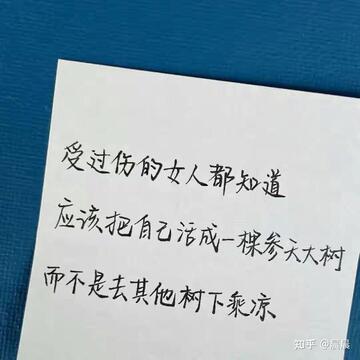 受过伤的女人都知道
应该把自己活成一棵参天大树
而不是去其他树下乘凉
知乎 @晨晨